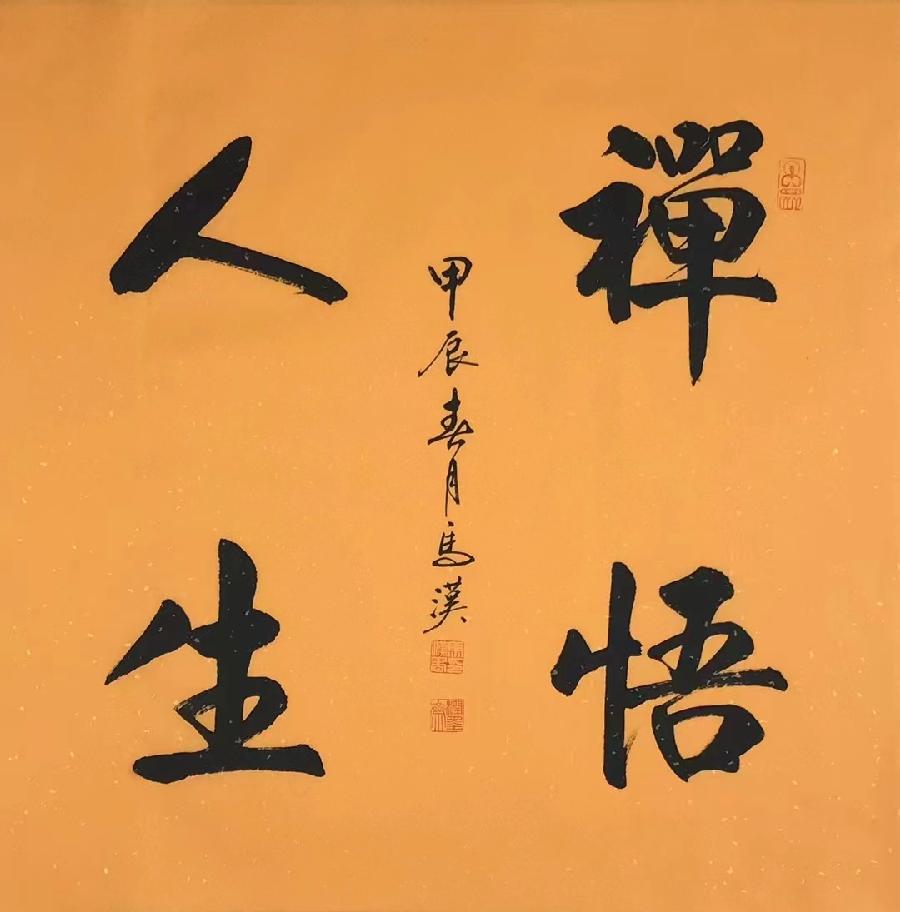 禪悟
人生
甲辰春月馬漢